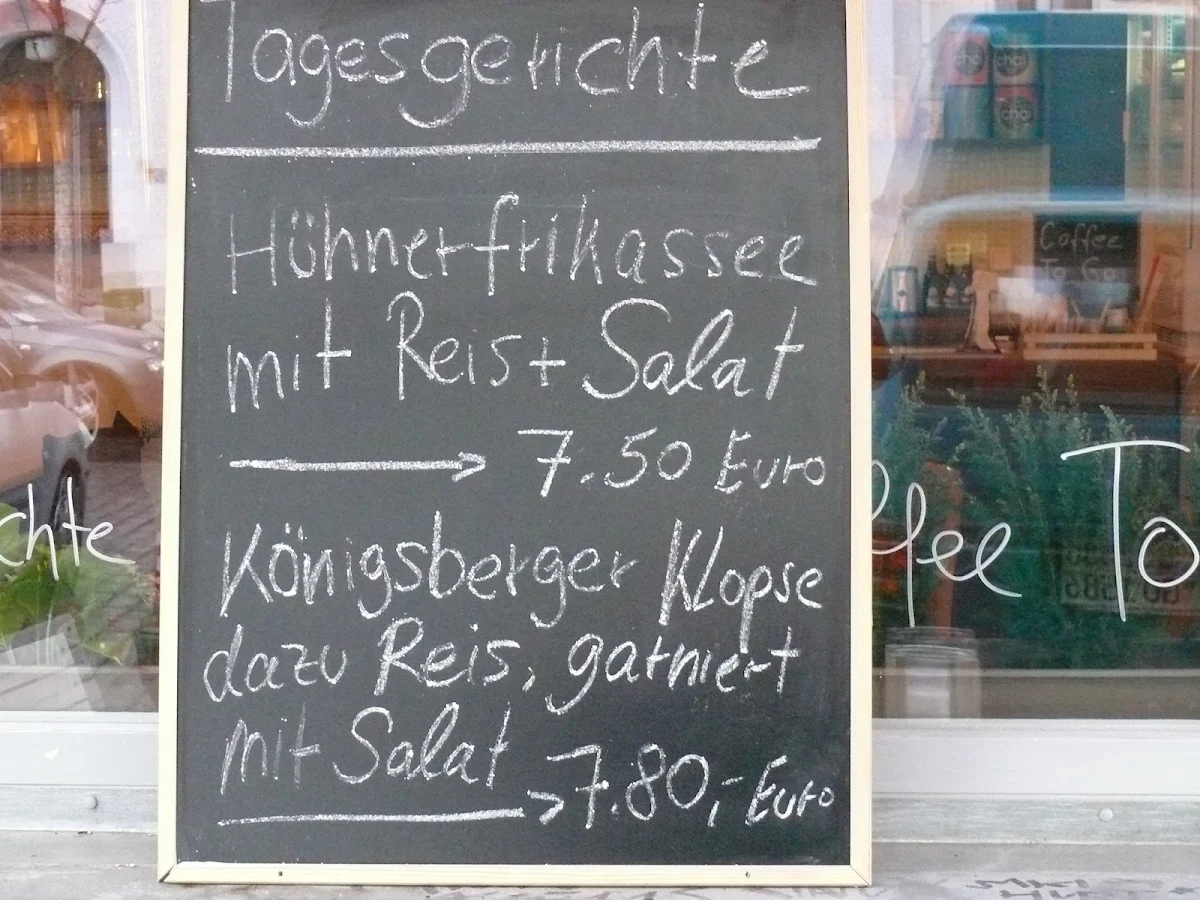 Tagesgerichte
Hühnerfrikassee
mit Reis + Salat
7.50 Euro
Königsberger Klopse
dazu Reis, garniert
mit Salat
7.80,- Euro
chte
ffee To
Coffee
To Go
chai
chai
chai